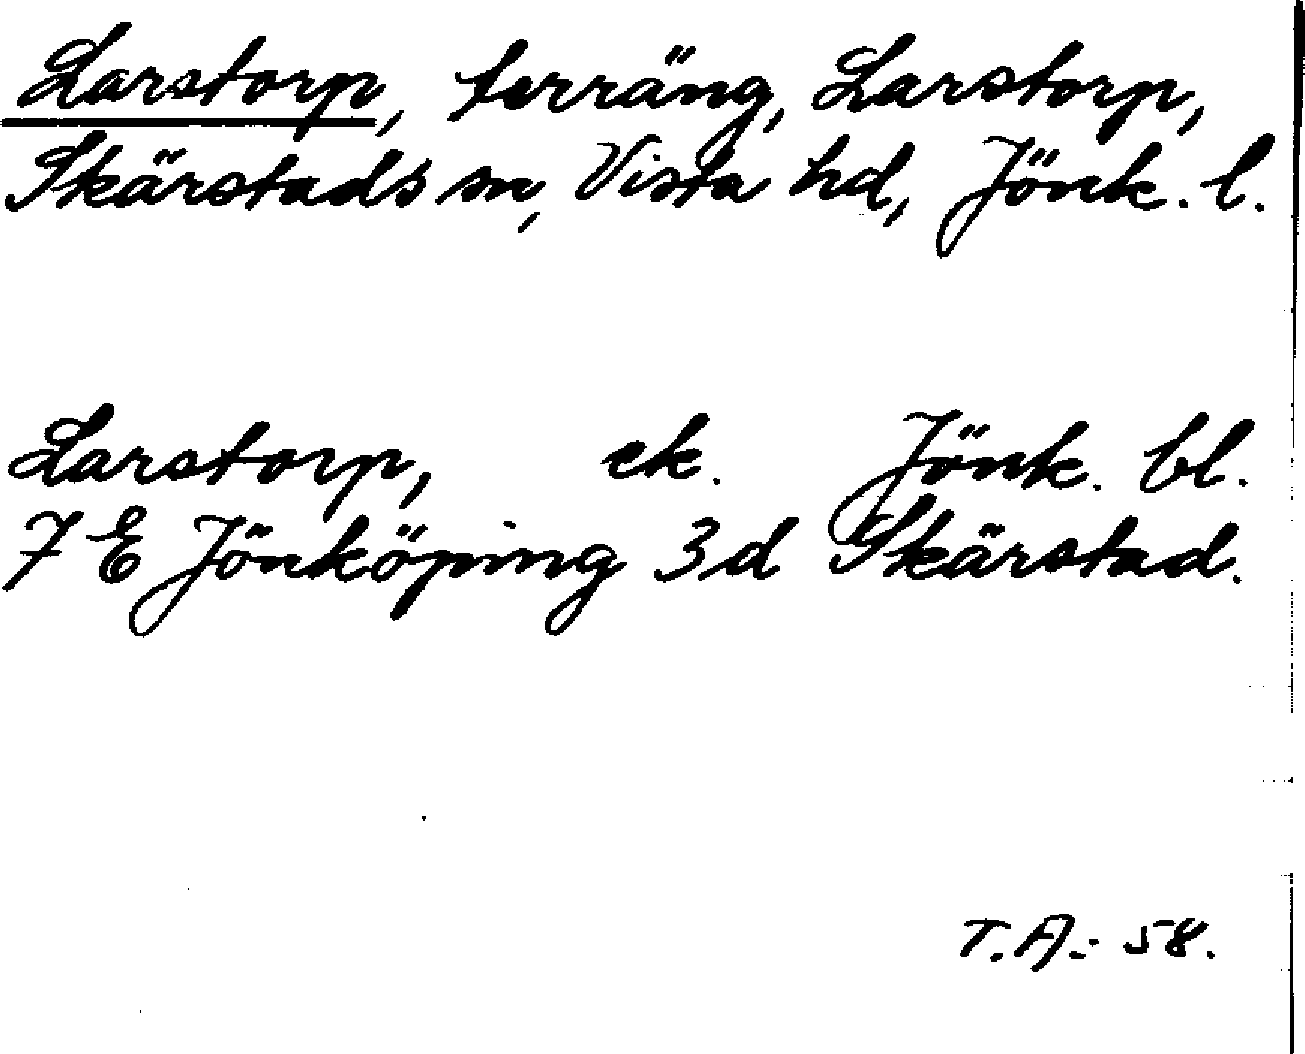 Larstorp, terräng, Larstorp,
Skärstads sn, Vista hd, Jönk. l.
Larstorp, ek. Jönk. bl.
7 E Jönköping 3d Skärstad.
T.A.- 58.